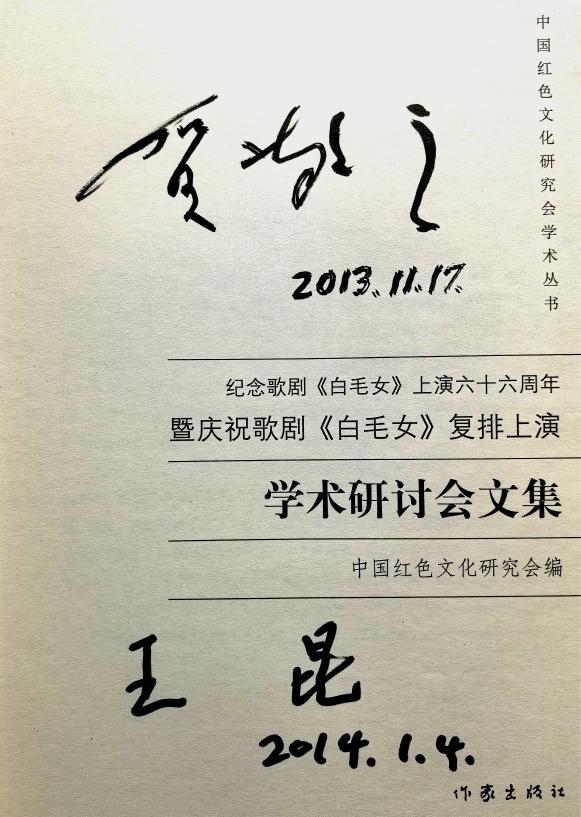 中国红色文化研究会学术丛书
贺敬之
2013.11.17.
纪念歌剧《白毛女》上演六十六周年
暨庆祝歌剧《白毛女》复排上演
学术研讨会文集
中国红色文化研究会编
王昆
2014.1.4.
作家出版社